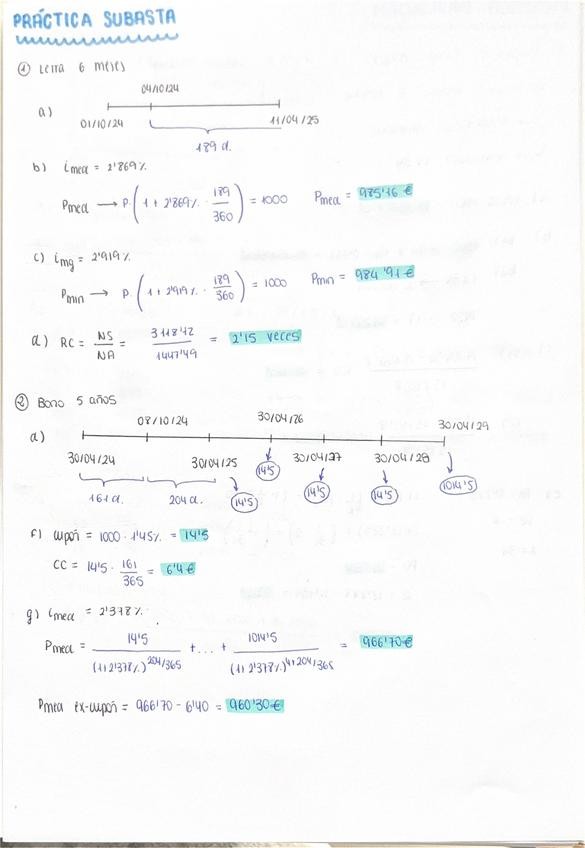 PRÁCTICA SUBASTA
① Letra 6 meses
a)
04/10/24
01/10/24
11/04/25
189 d.
b) imed = 2'869%
Pmed → P · (1 + 2'869% · 189/360) = 1000   Pmed = 985'16 €
c) img = 2'919%
Pmin → P · (1 + 2'919% · 189/360) = 1000   Pmin = 984'91 €
d) RC = NS/NA = 3118'42/1447'49 = 2'15 veces
② Bono 5 años
a)
08/10/24   30/04/26   30/04/29
30/04/24   30/04/25   30/04/27   30/04/28
161 d.   204 d.   14'5   14'5   14'5   14'5   1014'5
f) cupón = 1000 · 1'45% = 14'5
CC = 14'5 · 161/365 = 6'4 €
g) imed = 2'378%
Pmed = 14'5/(1+2'378%)^204/365 + ... + 1014'5/(1+2'378%)^4+204/365 = 966'70 €
Pmed ex-cupón = 966'70 - 6'40 = 960'30 €